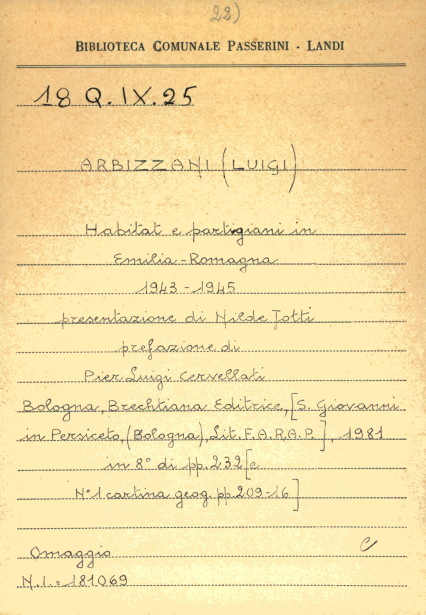 22)
BIBLIOTECA COMUNALE PASSERINI - LANDI
18 Q.IX.25
ARBIZZANI (LUIGI)
Habitat e partigiani in
Emilia-Romagna
1943-1945
presentazione di Nilde Jotti
prefazione di
Pier Luigi Cervellati
Bologna, Brechtiana Editrice, [S. Giovanni
in Persiceto, (Bologna), Lit. F.A.R.A.P.], 1981
in 8° di pp. 232 [e
N°1 cartina geog. pp. 209-16]
Omaggio
C
N.I. = 181069